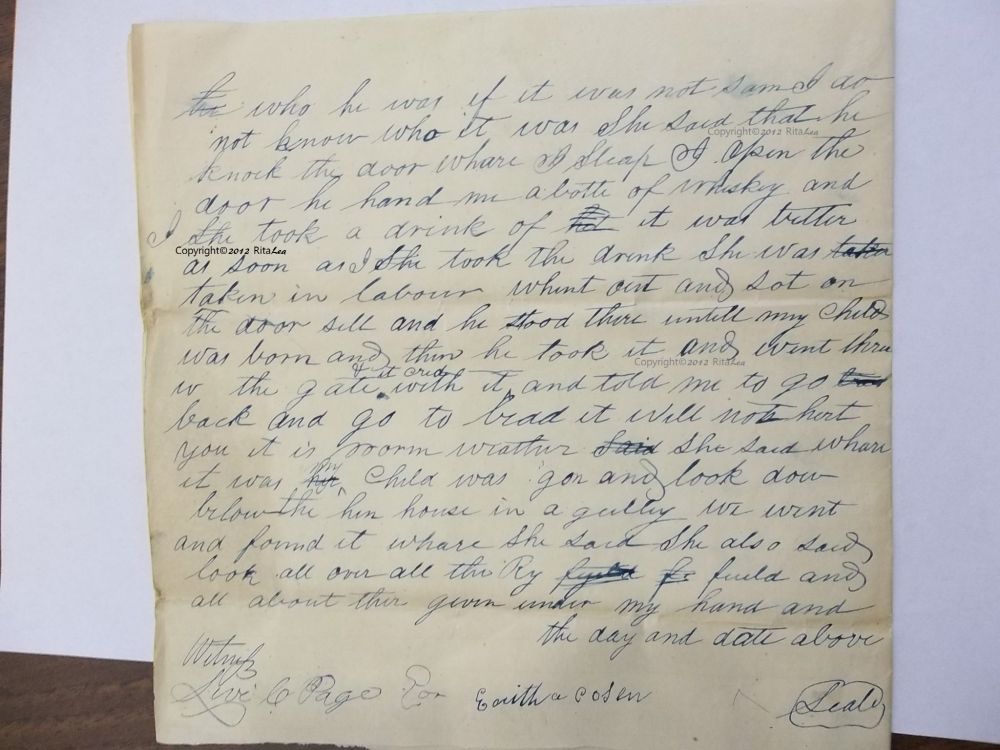 who he was if it was not sam I do
not know who it was She said that he
knock the door whare I Sleap I open the
door he hand me a botte of whiskey and
I She took a drink of it was better
as soon as I She took the drink She was taken
taken in labour whent out and sot on
the door sell and he stood there untell my Child
was born and then he took it and went thru
& it cried
w the gate with it and told me to go
back and go to bead it will not hert
you it is worm weather said She said whare
it was my Child was gon and look dow
below the hen house in a gulley we went
and found it whare She said She also said
look all over all the Ry field and
all about ther given under my hand and
the day and date above
Witness
Levi C Page Cor Edith a cosen Seal
Copyright©2012 RitaLea
Copyright©2012 RitaLea
Copyright©2012 RitaLea